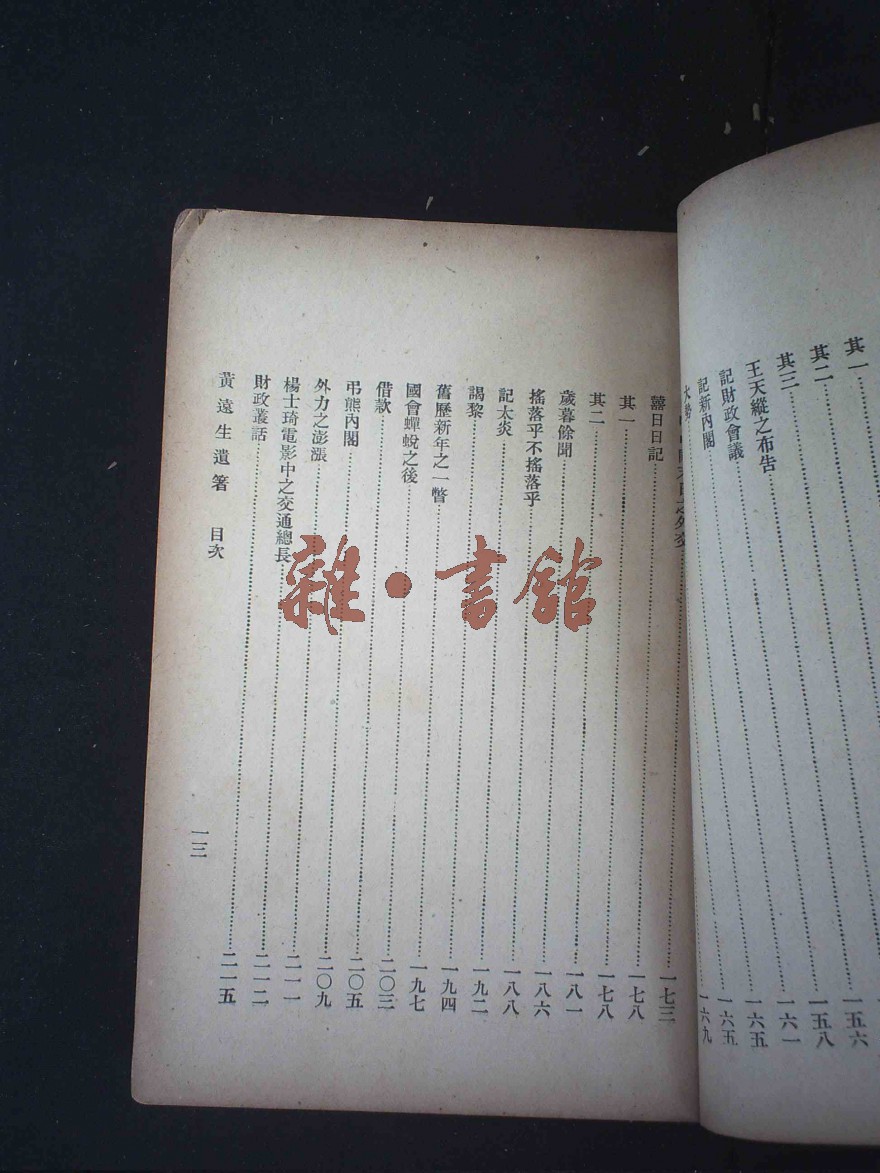 其一 一五六
其二 一五八
其三 一六一
王天縱之布告 一六五
記財政會議 一六五
記新內閣 一六九
大勢
日之外交 一七三
囍日日記 一七八
其一 一七八
其二 一八一
歲暮餘聞 一八六
搖落乎不搖落乎 一八八
記太炎 一九二
謁黎 一九四
舊歷新年之一瞥 一九七
國會蟬蛻之後 二〇三
借款 二〇五
弔熊內閣 二〇九
外力之澎漲 二一一
楊士琦電影中之交通總長 二一二
財政叢話 二一五
黃遠生遺著 目次
一三
雜·書館